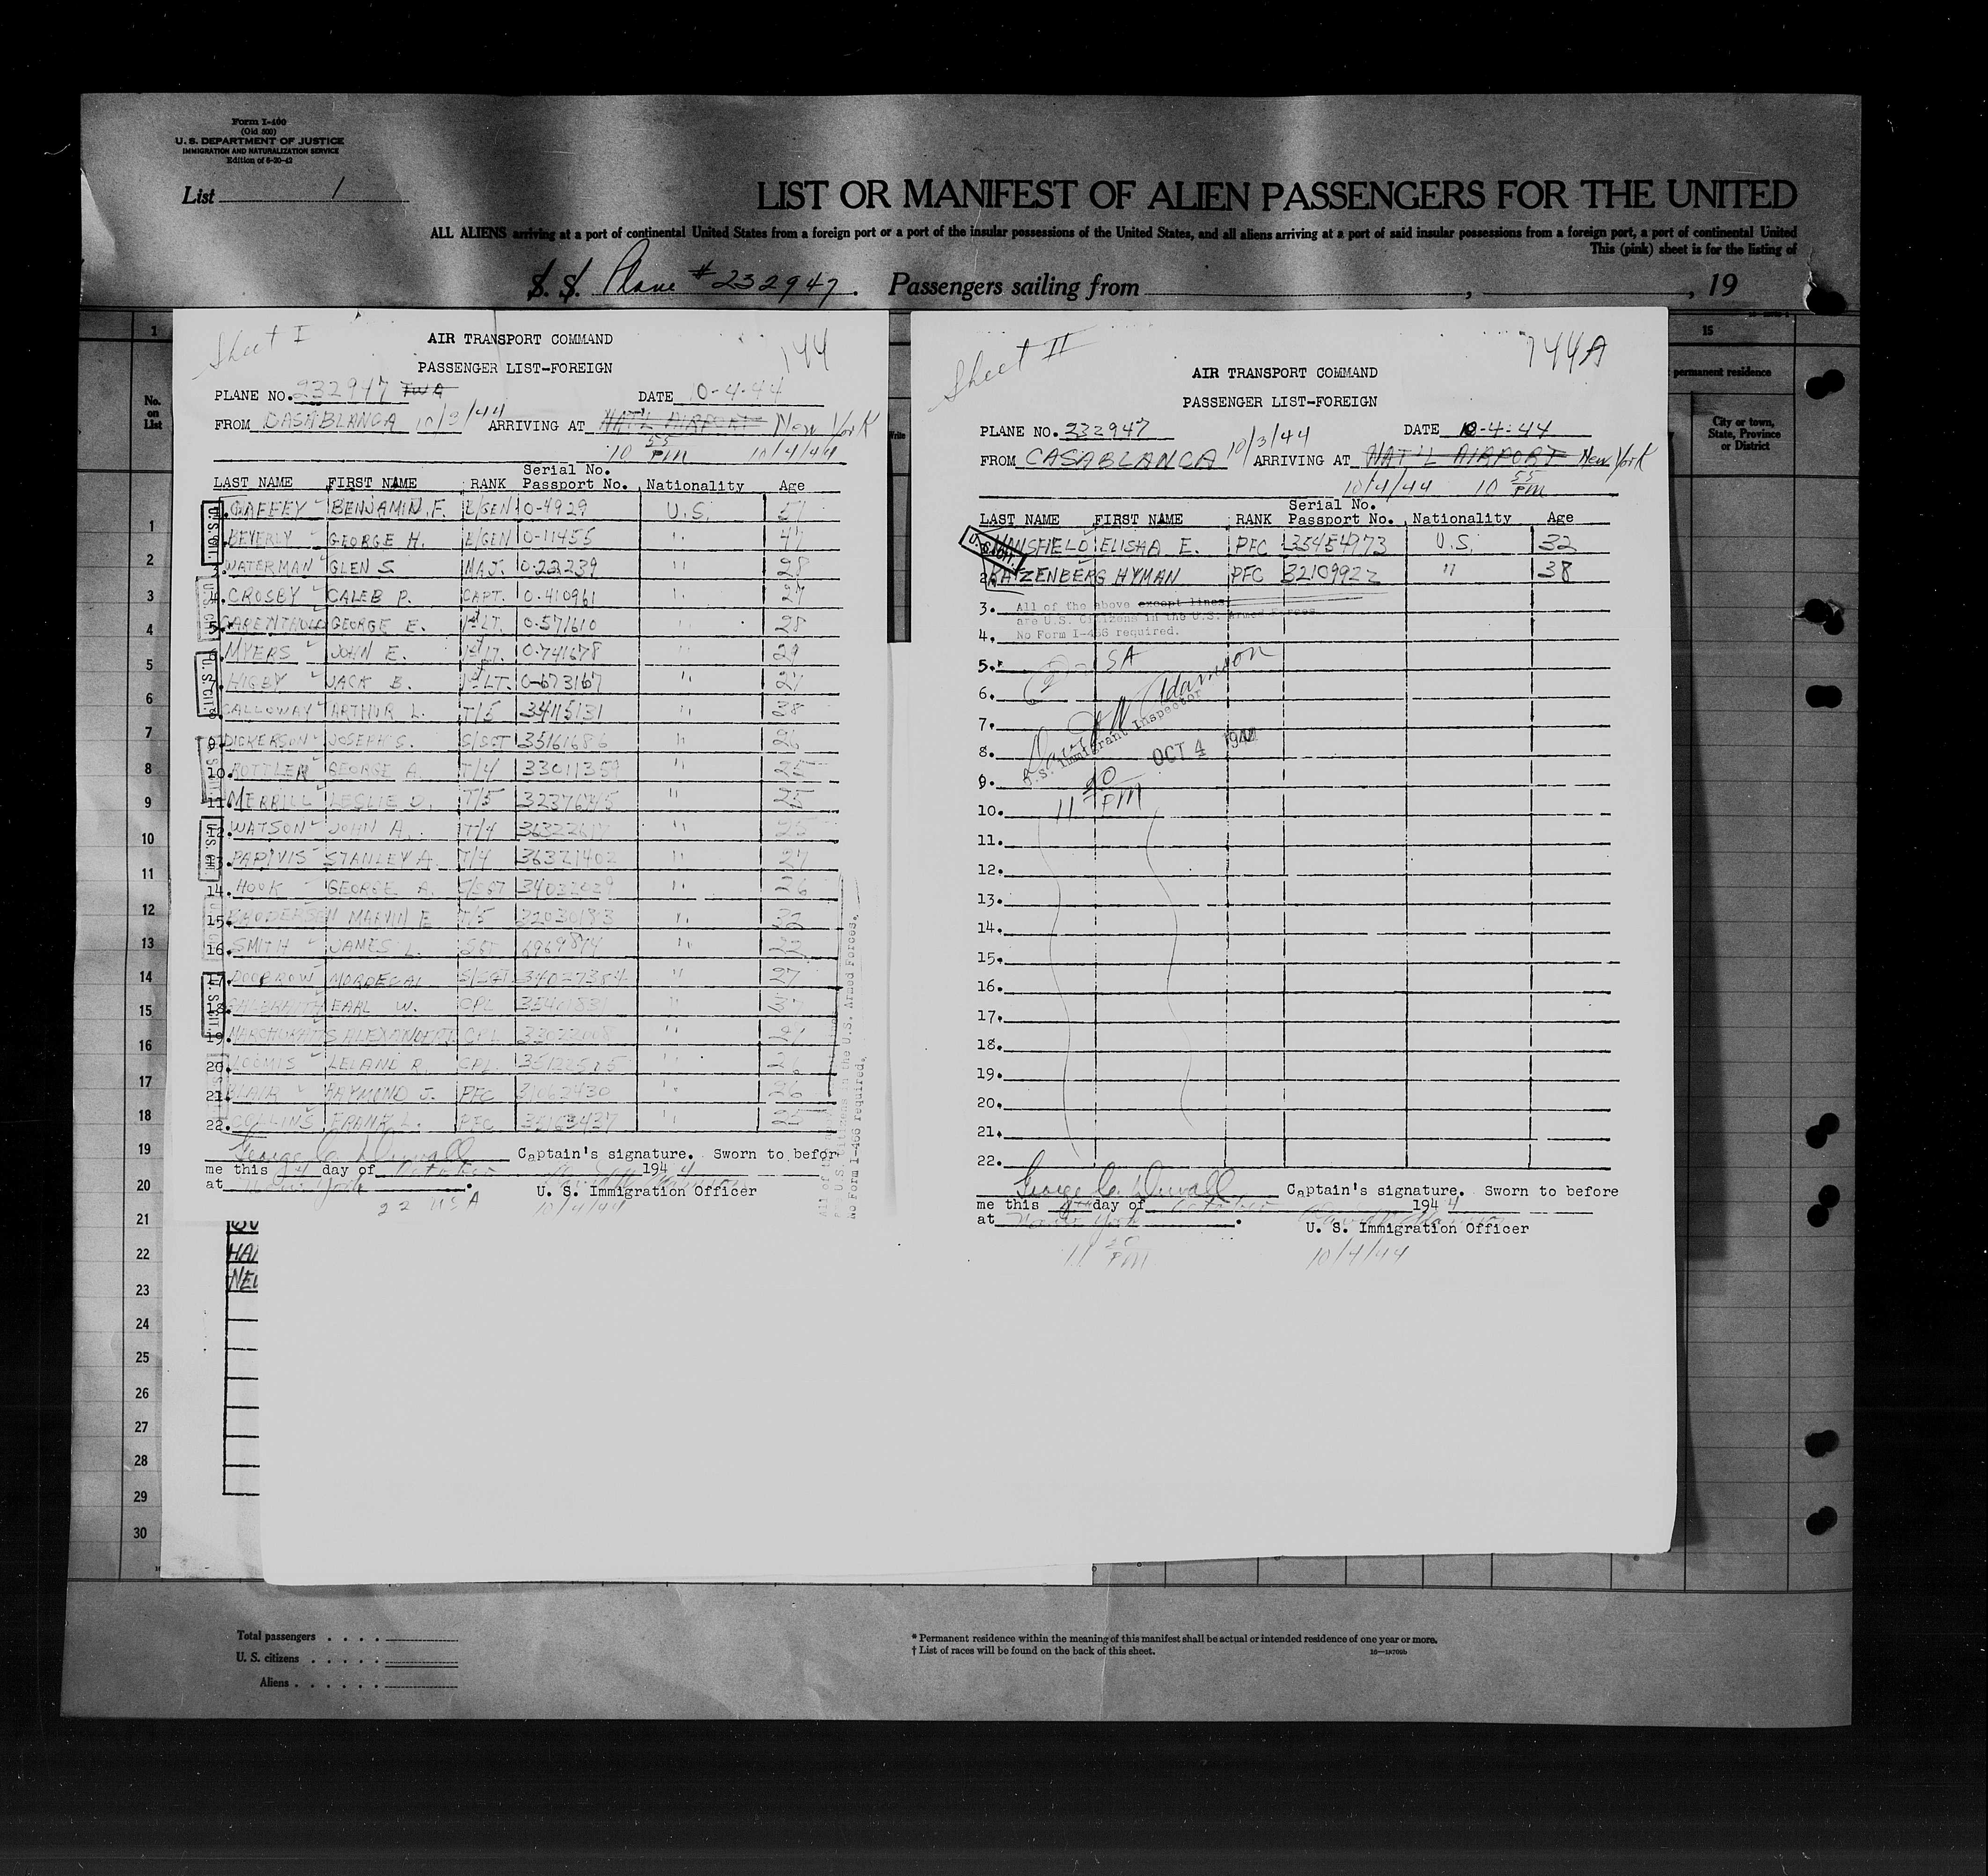 Form I-400
(Old 500)
U. S. DEPARTMENT OF JUSTICE
IMMIGRATION AND NATURALIZATION SERVICE
Edition of 6-20-42
List 1
LIST OR MANIFEST OF ALIEN PASSENGERS FOR THE UNITED
ALL ALIENS arriving at a port of continental United States from a foreign port or a port of the insular possessions of the United States, and all aliens arriving at a port of said insular possessions from a foreign port, a port of continental United
This (pink) sheet is for the listing of
S. S. Plane #232947. Passengers sailing from , , 19
Sheet I
AIR TRANSPORT COMMAND
PASSENGER LIST-FOREIGN
PLANE NO. 232947 TWA DATE 10-4-44
FROM CASABLANCA 10/3/44 ARRIVING AT NAT'L AIRPORT New York
10 55 PM 10/4/44
Serial No.
LAST NAME FIRST NAME RANK Passport No. Nationality Age
1. GAFFEY BENJAMIN F. B/GEN 0-4929 U.S. 51
2. BEVERLY GEORGE H. B/GEN 0-11455 " 47
3. WATERMAN GLEN S. MAJ. 0-22239 " 28
4. CROSBY CALEB P. CAPT. 0-410961 " 27
5. GEORGE E. 1st LT. 0-571610 " 28
6. MYERS JOHN E. 1st LT. 0-741678 " 29
7. HIGBY JACK B. 1st LT. 0-673167 " 27
8. CALLOWAY ARTHUR L. T/5 34115131 " 38
9. DICKERSON JOSEPH S. S/SGT 35161686 " 26
10. ROTTLER GEORGE A. T/4 33011359 " 25
11. MERRILL LESLIE D. T/5 " 25
12. WATSON JOHN A. T/4 " 25
13. PAPIVIS STANLEY A. T/4 36321402 " 27
14. HOOK GEORGE A. S/SGT 34032039 " 26
15. BRODERSEN MARVIN E T/5 32030183 " 32
16. SMITH JAMES L. SGT 6969874 " 22
17. MORDECAI S/SGT 34027384 " 27
18. GALBRAITH EARL W. CPL 35401831 " 37
19. ALEXANDER CPL 33022008 " 21
20. LOOMIS LELAND R. CPL " 26
21. BLAIR RAYMOND J. PFC 31062430 " 26
22. COLLINS FRANK L. PFC 35163437 " 25
George C. Duvall Captain's signature. Sworn to before
me this 4 day of October 1944
at New York.
U. S. Immigration Officer
22 USA 10/4/44
U.S. CIT.
No Form I-466 required.
Sheet II
744A
AIR TRANSPORT COMMAND
PASSENGER LIST-FOREIGN
PLANE NO. 232947 DATE 10-4-44
FROM CASABLANCA 10/3/44 ARRIVING AT NAT'L AIRPORT New York
10/4/44 10 55 PM
Serial No.
LAST NAME FIRST NAME RANK Passport No. Nationality Age
MANSFIELD ELISHA E. PFC 35454773 U.S. 32
2. KATZENBERG HYMAN PFC 32109922 " 38
3. All of the above except lines
are U.S. Citizens in the U.S. Armed Forces
4. No Form I-466 required.
5.
6.
7.
8. U.S. Immigrant Inspector OCT 4 1944
9.
10. 11 20 PM
11.
12.
13.
14.
15.
16.
17.
18.
19.
20.
21.
22.
George C. Duvall Captain's signature. Sworn to before
me this 4th day of October 1944
at New York.
U. S. Immigration Officer
11 20 PM 10/4/44
15
permanent residence
City or town,
State, Province
or District
1
No.
on
List
1
2
3
4
5
6
7
8
9
10
11
12
13
14
15
16
17
18
19
20
21
22
23
24
25
26
27
28
29
30
Total passengers . . . .
U. S. citizens . . . . .
Aliens . . . . . .
* Permanent residence within the meaning of this manifest shall be actual or intended residence of one year or more.
† List of races will be found on the back of this sheet.